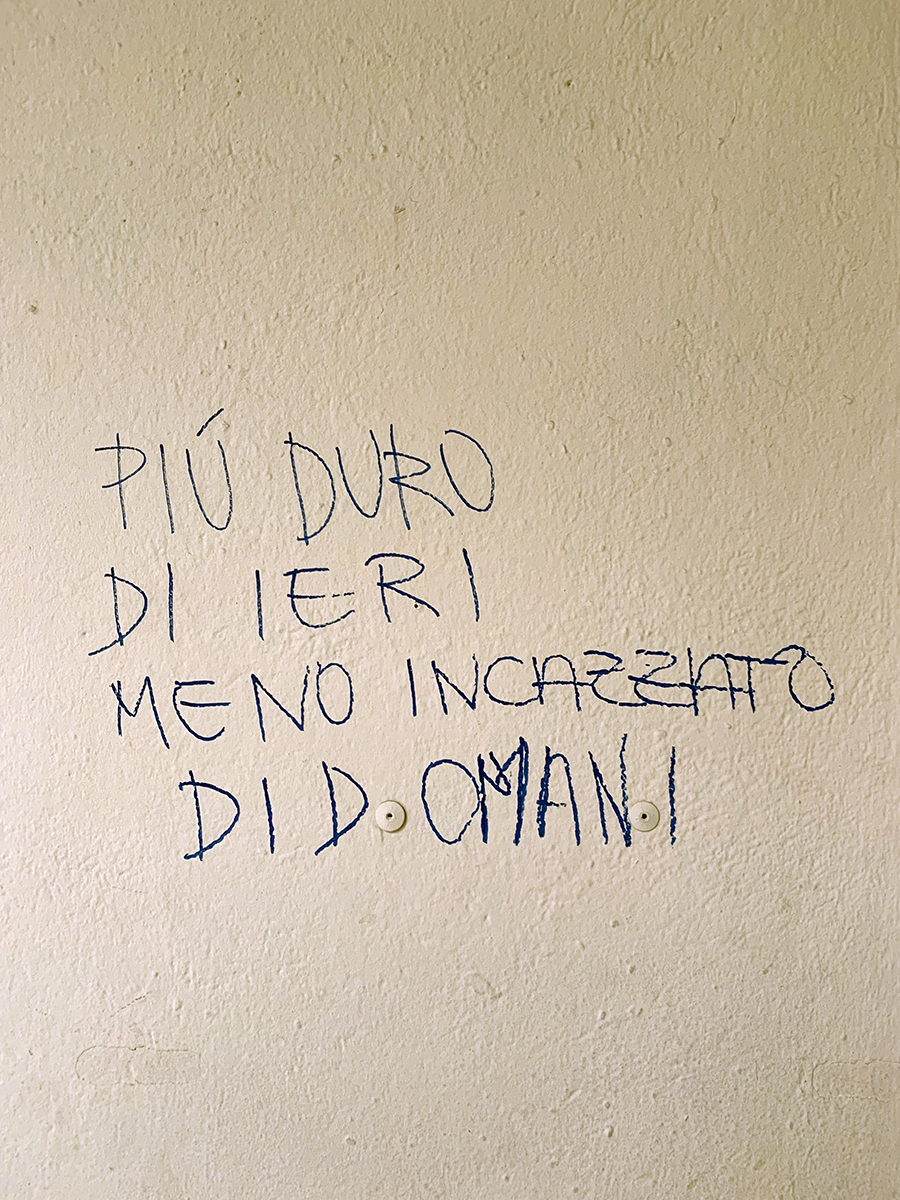 PIÚ DURO
DI IERI
MENO INCAZZATO
DI DOMANI